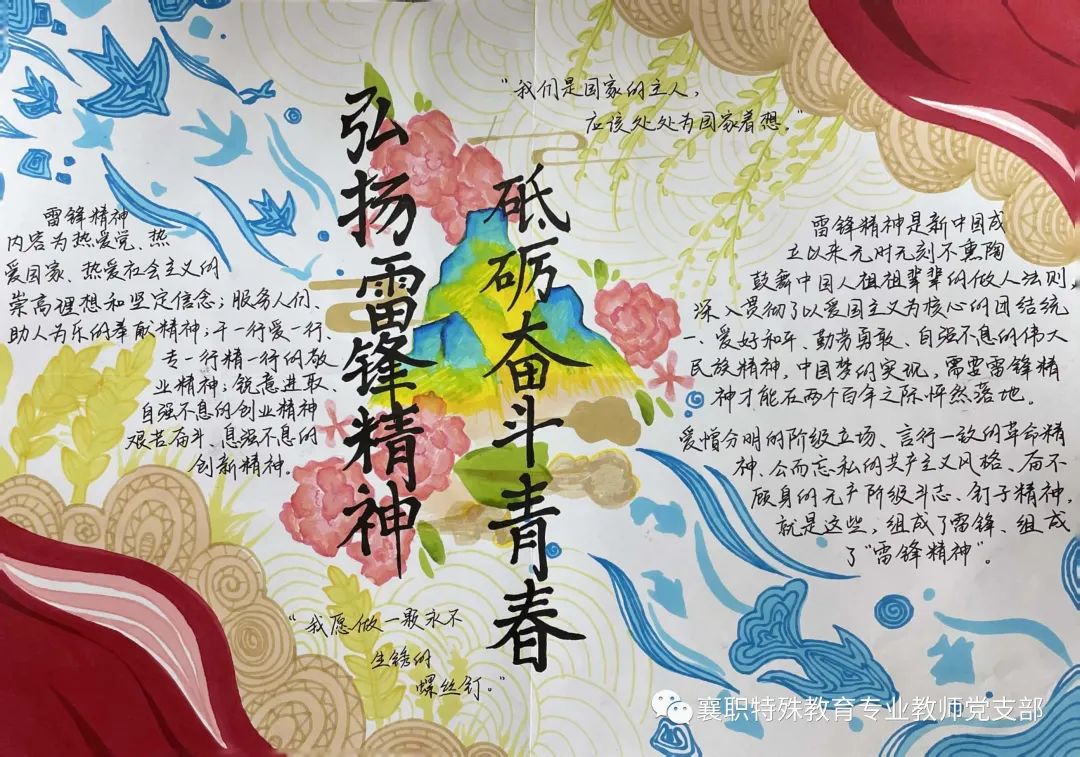 弘扬雷锋精神
砥砺奋斗青春
"我们是国家的主人，
应该处处为国家着想。"
雷锋精神
内容为热爱党、热
爱国家、热爱社会主义的
崇高理想和坚定信念；服务人们、
助人为乐的奉献精神；干一行爱一行、
专一行精一行的敬
业精神；锐意进取、
自强不息的创业精神
艰苦奋斗、息强不息的
创新精神。
雷锋精神是新中国成
立以来无时无刻不熏陶
鼓舞中国人祖祖辈辈的做人法则
深入贯彻了以爱国主义为核心的团结统
一、爱好和平、勤劳勇敢、自强不息的伟大
民族精神，中国梦的实现，需要雷锋精
神才能在两个百年之际怦然落地。
爱憎分明的阶级立场、言行一致的革命精
神、公而忘私的共产主义风格、奋不
顾身的无产阶级斗志、钉子精神，
就是这些，组成了雷锋、组成
了"雷锋精神"。
"我愿做一颗永不
生锈的
螺丝钉。"
襄职特殊教育专业教师党支部